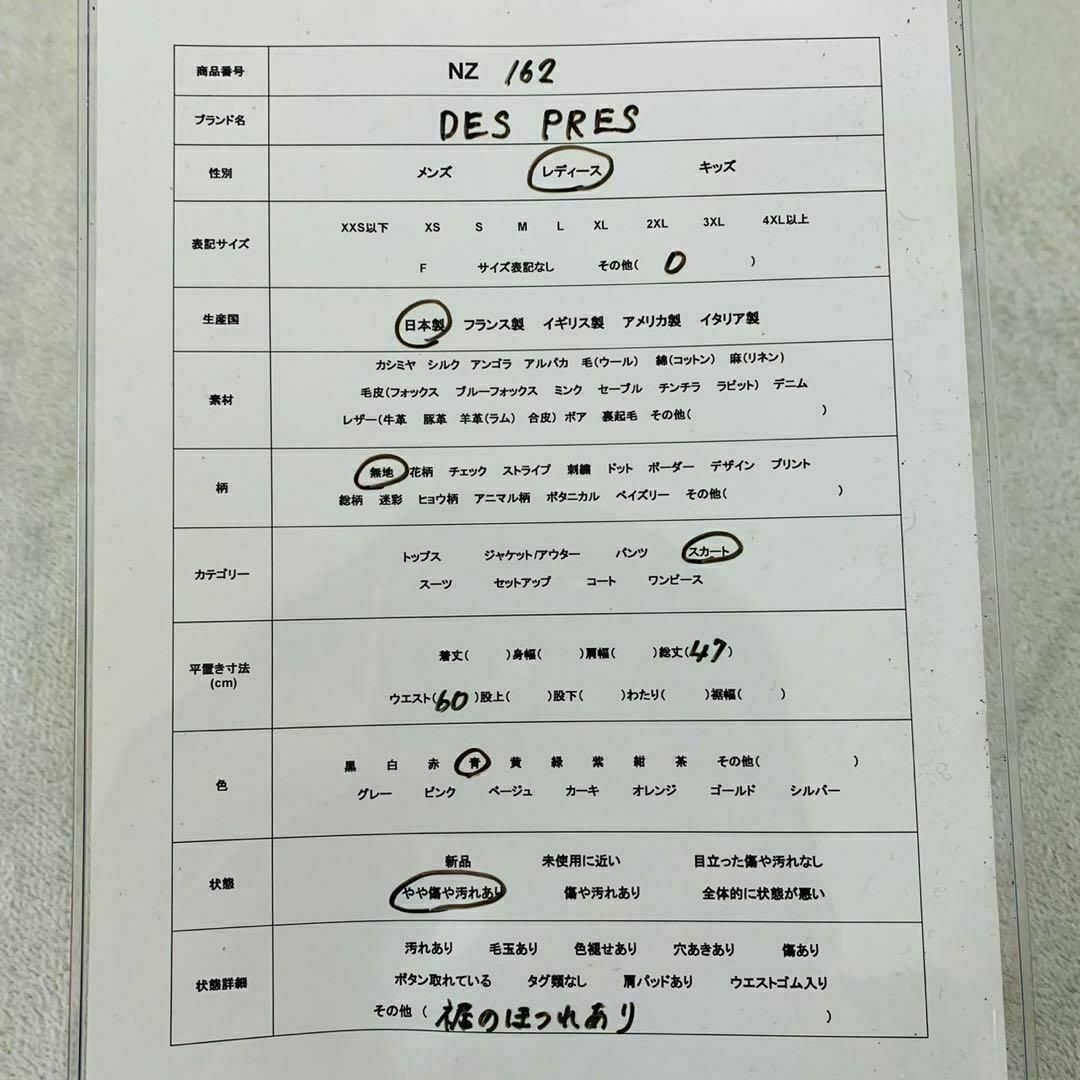 商品番号 NZ 162
ブランド名 DES PRES
性別 メンズ レディース キッズ
表記サイズ
XXS以下 XS S M L XL 2XL 3XL 4XL以上
F サイズ表記なし その他( 0 )
生産国 日本製 フランス製 イギリス製 アメリカ製 イタリア製
素材
カシミヤ シルク アンゴラ アルパカ 毛(ウール) 綿(コットン) 麻(リネン)
毛皮(フォックス ブルーフォックス ミンク セーブル チンチラ ラビット) デニム
レザー(牛革 豚革 羊革(ラム) 合皮) ボア 裏起毛 その他( )
柄
無地 花柄 チェック ストライプ 刺繍 ドット ボーダー デザイン プリント
総柄 迷彩 ヒョウ柄 アニマル柄 ボタニカル ペイズリー その他( )
カテゴリー
トップス ジャケット/アウター パンツ スカート
スーツ セットアップ コート ワンピース
平置き寸法
(cm)
着丈( )身幅( )肩幅( )総丈(47)
ウエスト(60)股上( )股下( )わたり( )裾幅( )
色
黒 白 赤 青 黄 緑 紫 紺 茶 その他( )
グレー ピンク ベージュ カーキ オレンジ ゴールド シルバー
状態
新品 未使用に近い 目立った傷や汚れなし
やや傷や汚れあり 傷や汚れあり 全体的に状態が悪い
状態詳細
汚れあり 毛玉あり 色褪せあり 穴あきあり 傷あり
ボタン取れている タグ類なし 肩パッドあり ウエストゴム入り
その他 ( 裾のほつれあり )